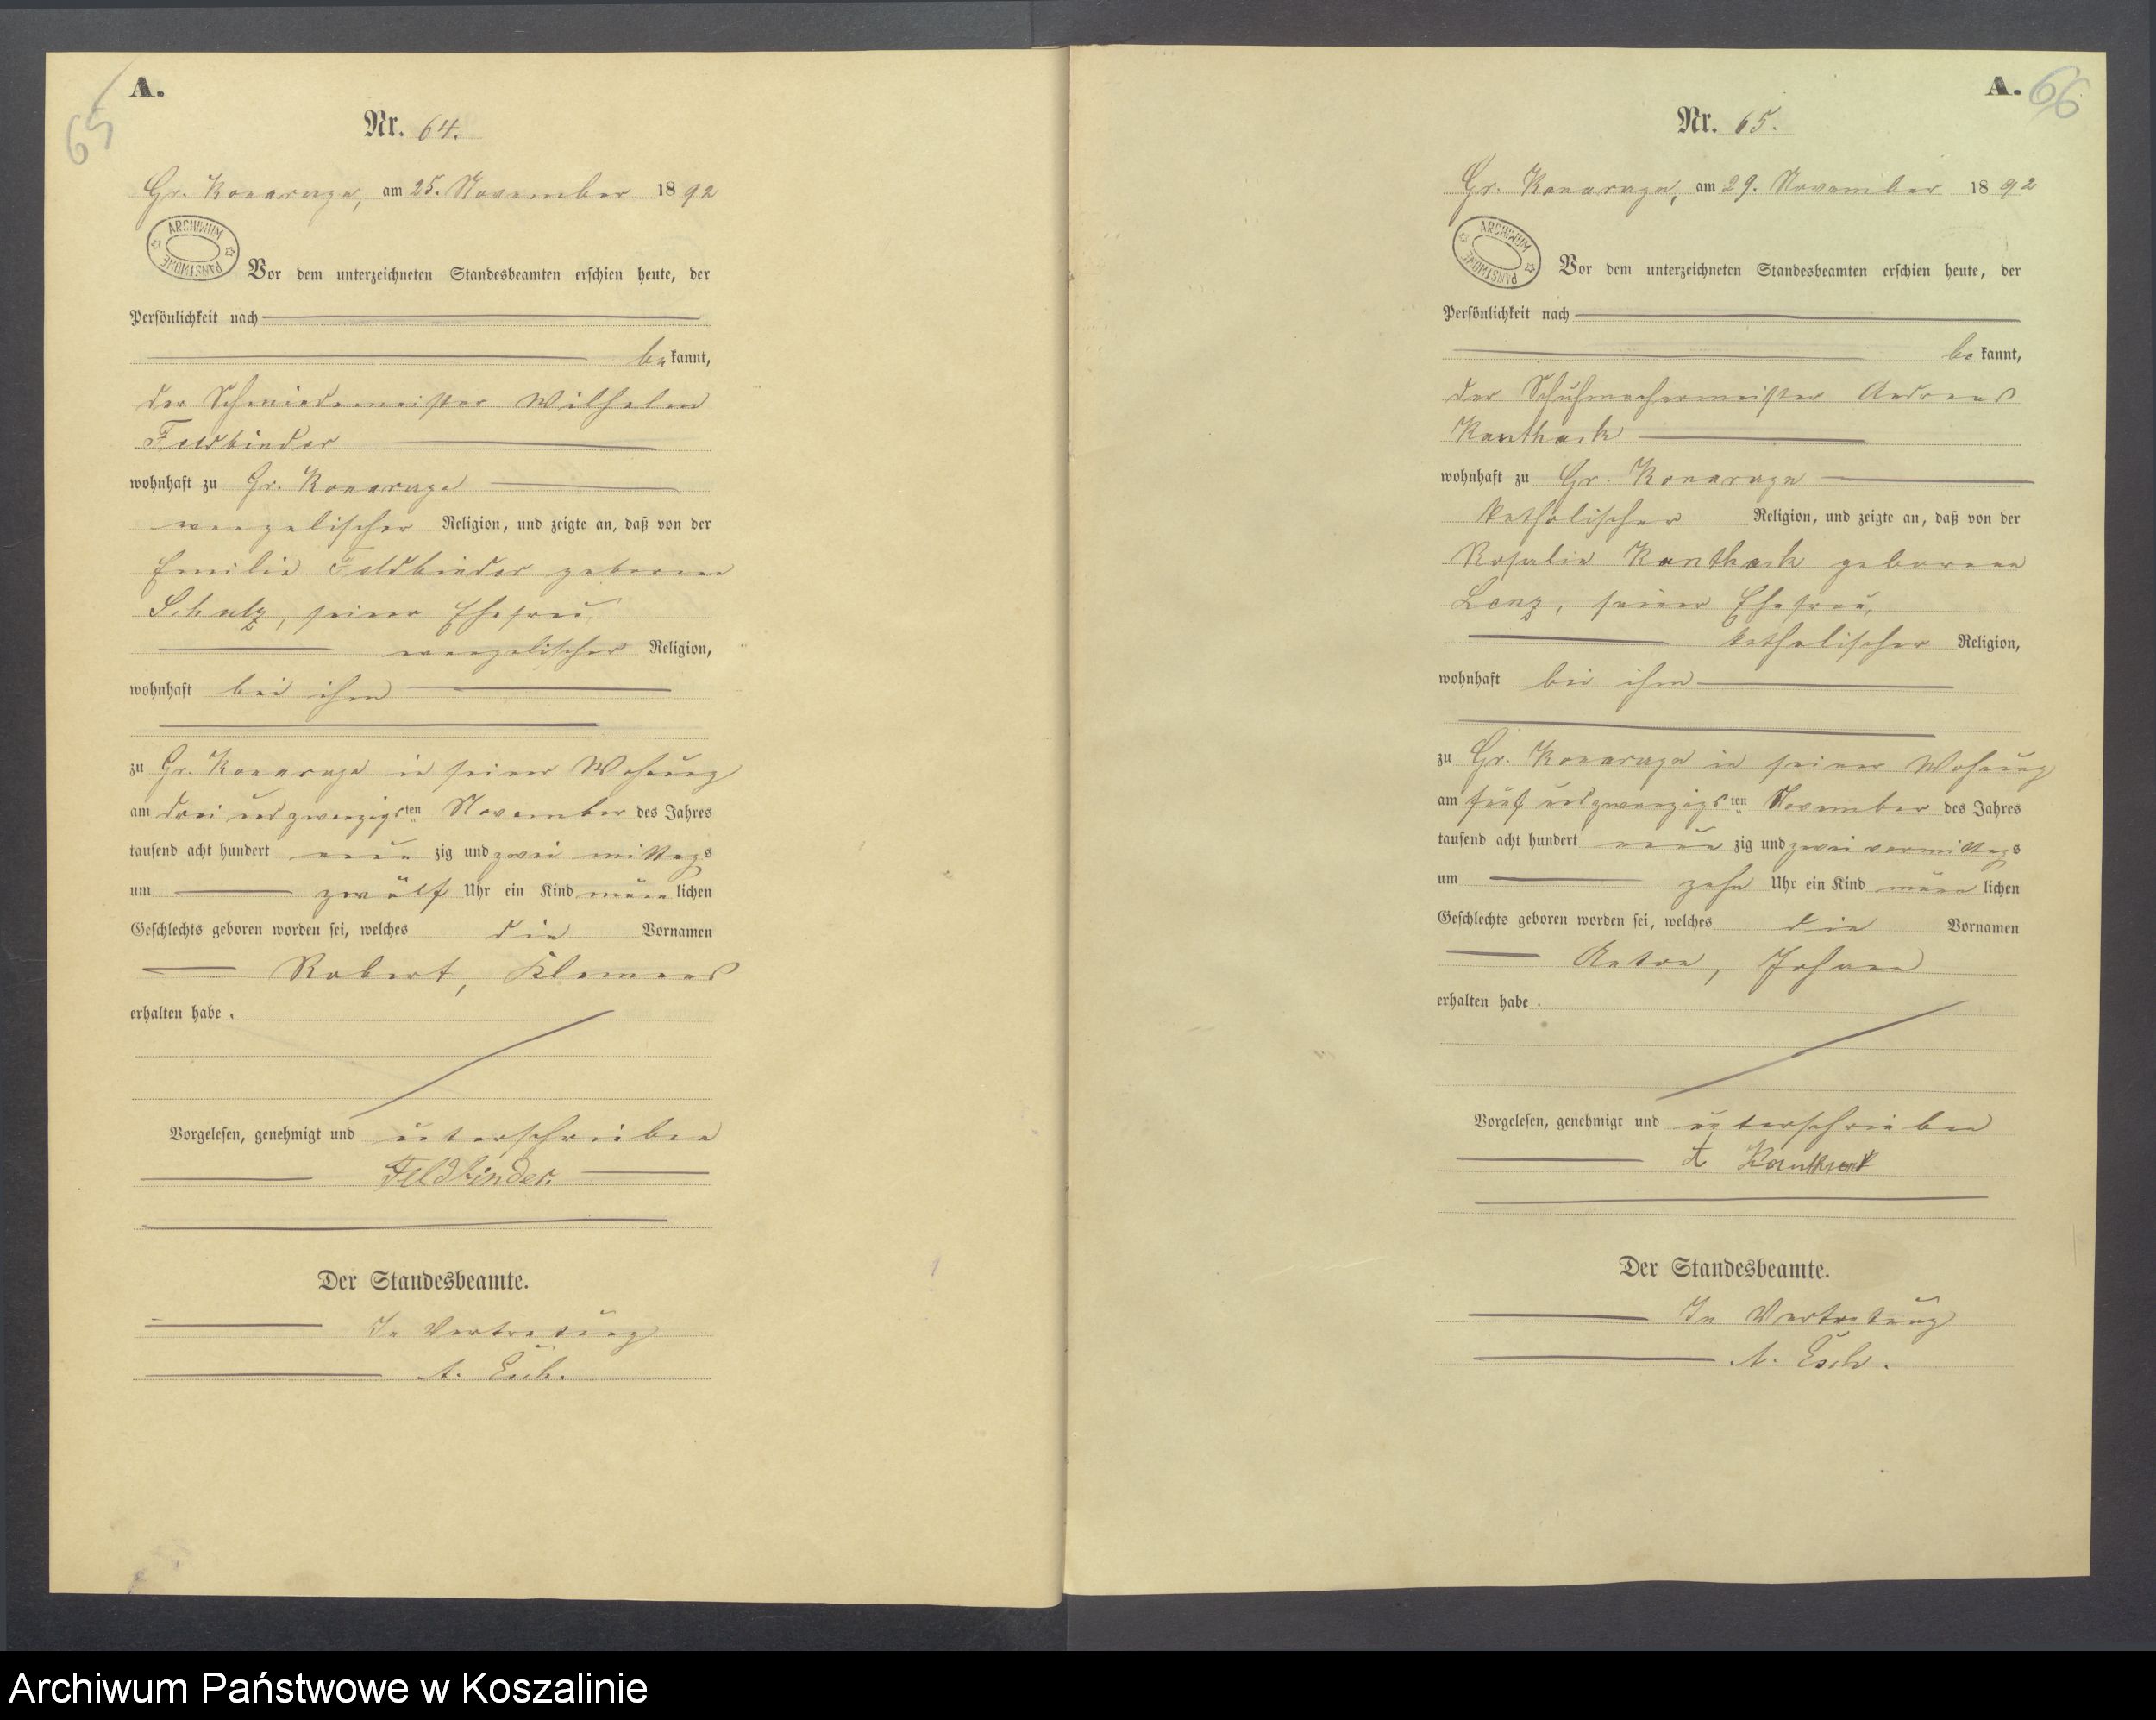 65
A.
Nr. 64.
Gr. Konarczyn, am 25. November 1892
ARCHIWUM PAŃSTWOWE
Vor dem unterzeichneten Standesbeamten erschien heute, der
Persönlichkeit nach
bekannt,
der Schmiedemeister Wilhelm
Feldbinder
wohnhaft zu Gr.
evangelischer Religion, und zeigte an, daß von der
Emilie Feldbinder geborene
Schulz, seiner Ehefrau,
evangelischer Religion,
wohnhaft bei ihm
zu Gr. in seiner Wohnung
am drei und zwanzigsten November des Jahres
tausend acht hundert neunzig und zwei mittags
um zwölf Uhr ein Kind männlichen
Geschlechts geboren worden sei, welches die Vornamen
Robert, Klemens
erhalten habe.
Vorgelesen, genehmigt und unterschrieben
Feldbinder.
Der Standesbeamte.
In Vertretung
A. Esch.
A. 66
Nr. 65.
Gr. am 29. November 1892
ARCHIWUM PAŃSTWOWE
Vor dem unterzeichneten Standesbeamten erschien heute, der
Persönlichkeit nach
bekannt,
der Schuhmachermeister Andreas
Kanthack
wohnhaft zu Gr.
katholischer Religion, und zeigte an, daß von der
Rosalie Kanthack geborene
Lenz, seiner Ehefrau,
katholischer Religion,
wohnhaft bei ihm
zu Gr. in seiner Wohnung
am fünf und zwanzigsten November des Jahres
tausend acht hundert neunzig und zwei vormittags
um zehn Uhr ein Kind männlichen
Geschlechts geboren worden sei, welches die Vornamen
Anton, Johann
erhalten habe.
Vorgelesen, genehmigt und unterschrieben
A Kanthack
Der Standesbeamte.
In Vertretung
A. Esch.
Archiwum Państwowe w Koszalinie